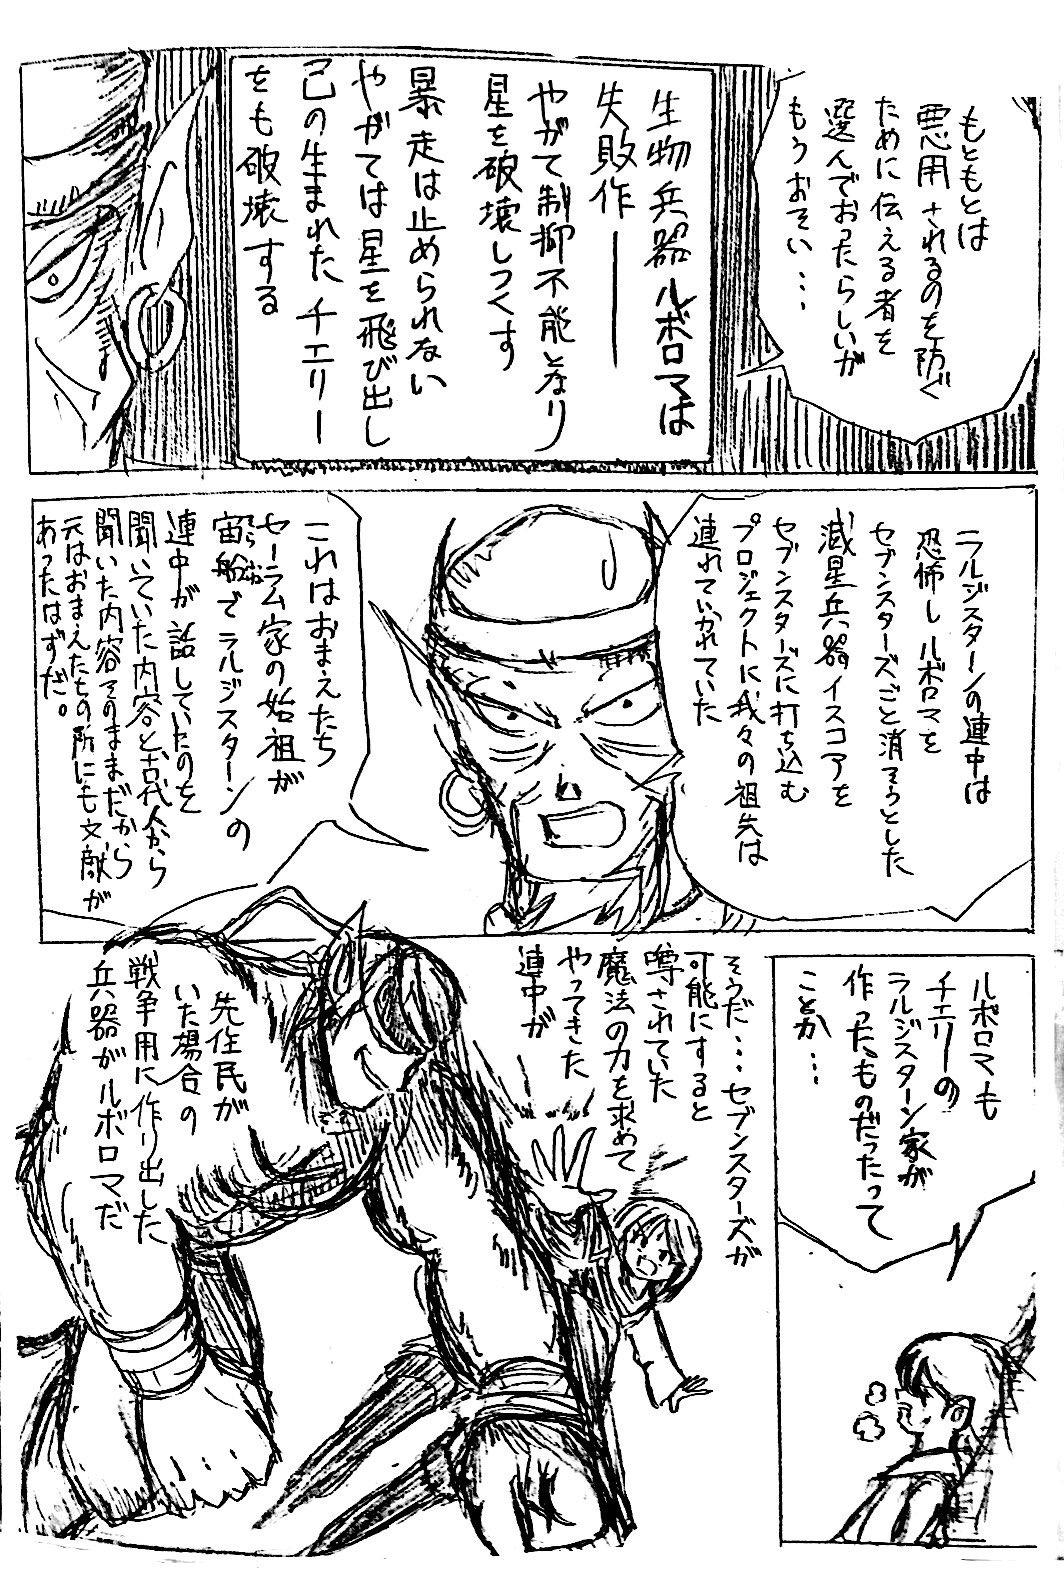 もともとは
悪用されるのを防ぐ
ために伝える者を
選んでおったらしいが
もうおそい・・・
生物兵器ルボロマは
失敗作――
やがて制御不能となり
星を破壊しつくす
暴走は止められない
やがては星を飛び出し
己の生まれたチエリー
をも破壊する
ラルジスターンの連中は
恐怖しルボロマを
セブンスターズごと消そうとした
滅星兵器イスコアを
セブンスターズに打ち込む
プロジェクトに我々の祖先は
連れていかれていた
これはおまえたち
セーラム家の始祖が
宙船でラルジスターンの
連中が話していたのを
聞いていた内容と、古代人から
聞いた内容そのままだから
元はおまえたちの所にも文献が
あったはずだ。
ルボロマも
チエリーの
ラルジスターン家が
作ったものだったって
ことか・・・
そうだ・・・セブンスターズが
可能にすると
噂されていた
魔法の力を求めて
やってきた
連中が
先住民が
いた場合の
戦争用に作り出した
兵器がルボロマだ